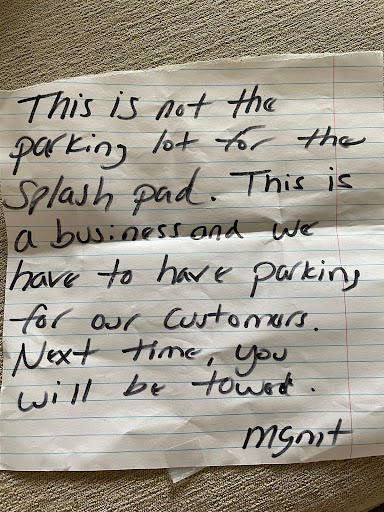 This is not the
parking lot for the
Splash pad. This is
a business and we
have to have parking
for our customers.
Next time, you
will be towed.
mgmt